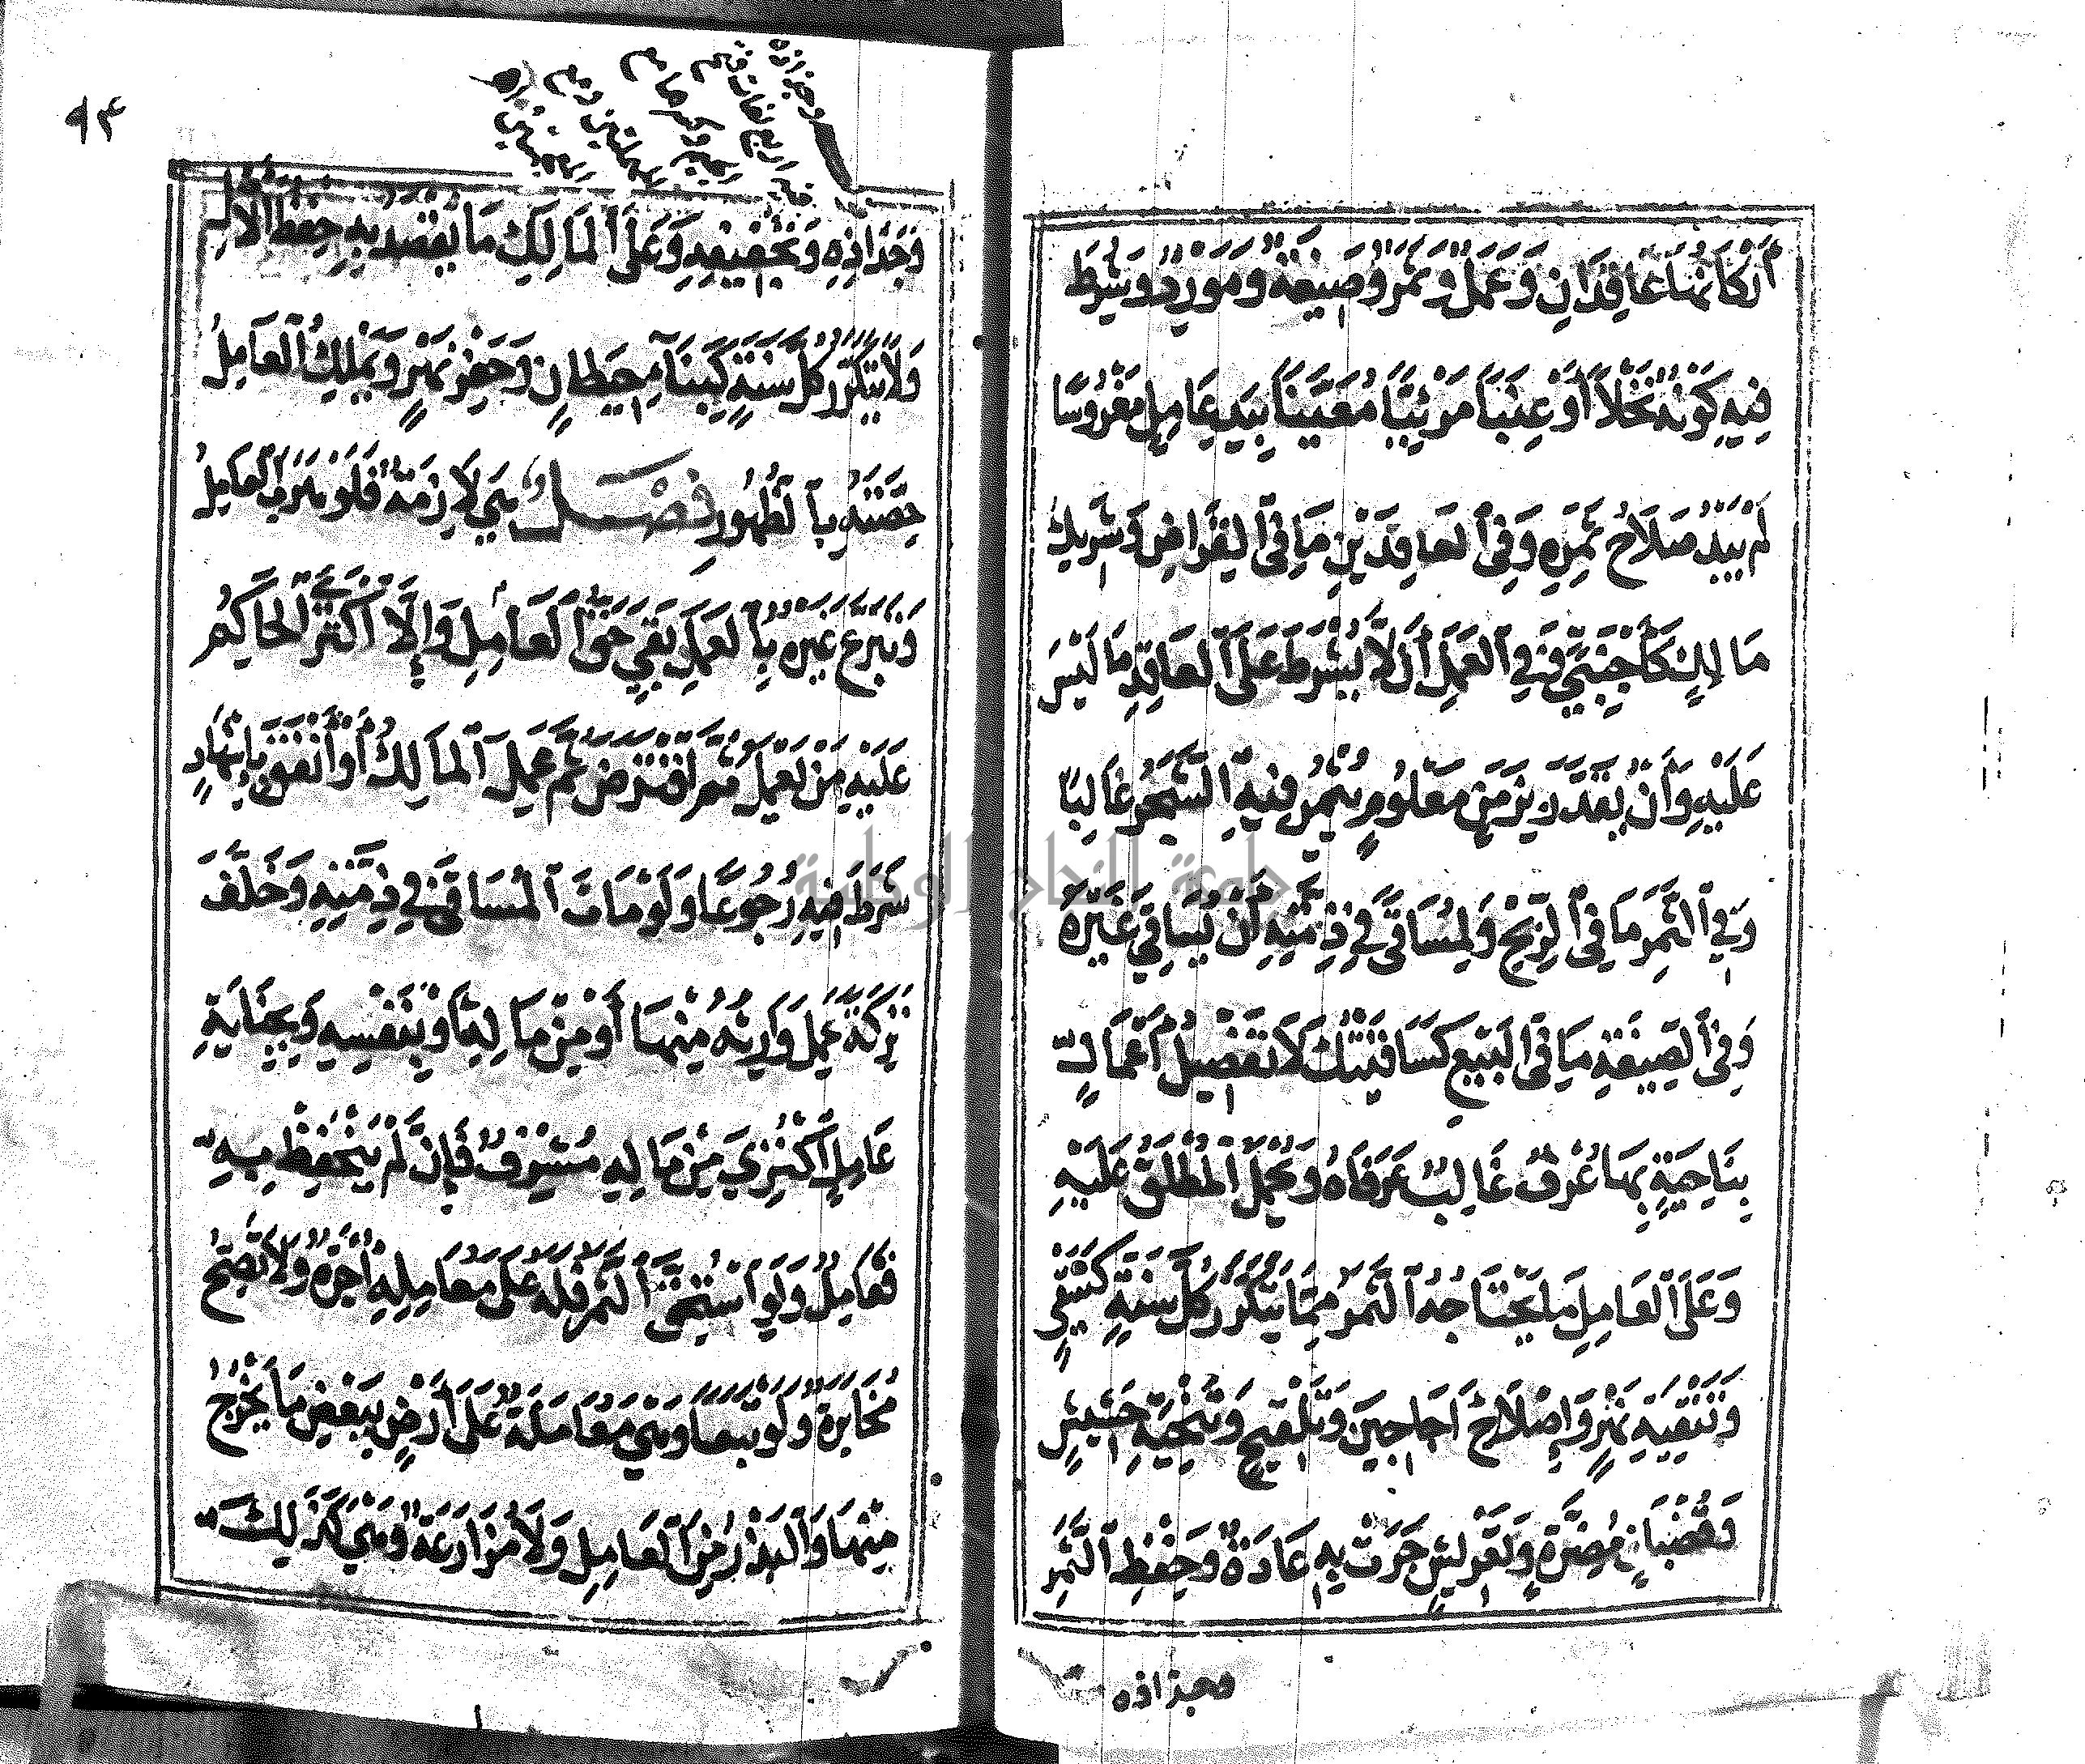 أَرْكَانُهَا عَاقِدَانِ وَعَمَلٌ وَثَمَرٌ وَصِيغَةٌ وَمَوْرِدٌ وَشُرِطَ
فِيهِ كَوْنُهُ نَخْلًا أَوْ عِنَبًا مَرْئِيًّا مُعَيَّنًا بِيَدِ عَامِلٍ مَغْرُوسًا
لَمْ يَبْدُ صَلَاحُ ثَمَرِهِ وَفِي الْعَاقِدَيْنِ مَا فِي الْقِرَاضِ وَشَرِيكُ
مَالِكٍ كَأَجْنَبِيٍّ وَفِي الْعَمَلِ أَنْ لَا يُشْرَطَ عَلَى الْعَاقِدِ مَا لَيْسَ
عَلَيْهِ وَأَنْ يُقَدَّرَ بِزَمَنٍ مَعْلُومٍ يُثْمِرُ فِيهِ الشَّجَرُ غَالِبًا
وَفِي الثَّمَرِ مَا فِي الرِّبْحِ وَلِمُسَاقًى فِي ذِمَّتِهِ أَنْ يُسَاقِيَ غَيْرَهُ
وَفِي الصِّيغَةِ مَا فِي الْبَيْعِ كَسَاقَيْتُكَ لَا تَفْصِيلُ أَعْمَالٍ
بِنَاحِيَةٍ بِهَا عُرْفٌ غَالِبٌ عَرَفَاهُ وَيُحْمَلُ الْمُطْلَقُ عَلَيْهِ
وَعَلَى الْعَامِلِ مَا يَحْتَاجُهُ الثَّمَرُ مِمَّا يَتَكَرَّرُ كُلَّ سَنَةٍ كَسَقْيٍ
وَتَنْقِيَةِ نَهْرٍ وَإِصْلَاحِ أَجَاجِينَ وَتَلْقِيحٍ وَتَنْحِيَةِ حَشِيشٍ
وَقُضْبَانٍ مُضِرَّةٍ وَتَعْرِيشٍ جَرَتْ بِهِ عَادَةٌ وَحِفْظِ الثَّمَرِ
وجذاذه
٩٤
وَجَذَاذِهِ وَتَجْفِيفِهِ وَعَلَى الْمَالِكِ مَا يُقْصَدُ بِهِ حِفْظُ الْأَصْلِ
وَلَا يَتَكَرَّرُ كُلَّ سَنَةٍ كَبِنَاءِ حِيطَانٍ وَحَفْرِ نَهْرٍ وَيَمْلِكُ الْعَامِلُ
حِصَّتَهُ بِالظُّهُورِ فَصْلٌ هِيَ لَازِمَةٌ فَلَوْ هَرَبَ الْعَامِلُ
وَتَبَرَّعَ غَيْرُهُ بِالْعَمَلِ بَقِيَ حَقُّ الْعَامِلِ وَإِلَّا اكْتَرَى الْحَاكِمُ
عَلَيْهِ مَنْ يَعْمَلُ ثُمَّ اقْتَرَضَ ثُمَّ عَمِلَ الْمَالِكُ أَوْ أَنْفَقَ بِإِشْهَادٍ
شَرَطَ فِيهِ رُجُوعًا وَلَوْ مَاتَ الْمُسَاقَى فِي ذِمَّتِهِ وَخَلَّفَ
تَرِكَةً عَمِلَ وَارِثُهُ مِنْهَا أَوْ مِنْ مَالِهِ أَوْ بِنَفْسِهِ وَبِخِيَانَةِ
عَامِلٍ اُكْتُرِيَ مِنْ مَالِهِ مُشْرِفٌ فَإِنْ لَمْ يَتَحَفَّظْ بِهِ
فَعَامِلٌ وَلَوِ اسْتُحِقَّ الثَّمَرُ فَلَهُ عَلَى مُعَامِلِهِ أُجْرَةٌ وَلَا تَصِحُّ
مُخَابَرَةٌ وَلَوْ تَبَعًا وَهِيَ مُعَامَلَةٌ عَلَى أَرْضٍ بِبَعْضِ مَا يَخْرُجُ
مِنْهَا وَالْبَذْرُ مِنَ الْعَامِلِ وَلَا مُزَارَعَةٌ وَهِيَ كَذَلِكَ
جامعة النجاح الوطنية